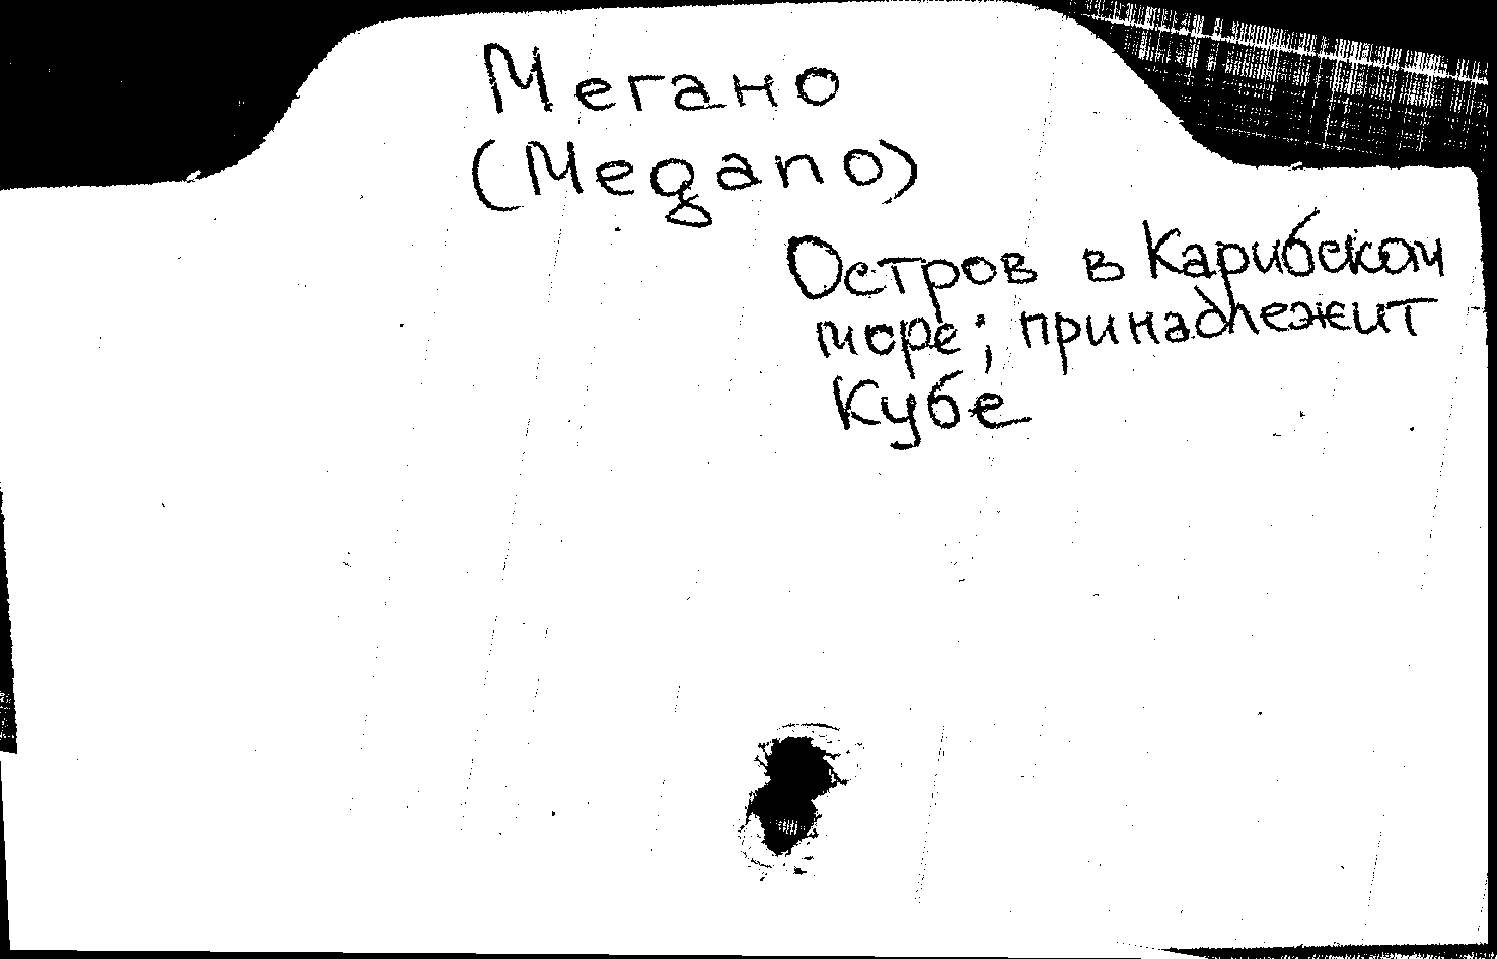 Мегано
(Megano)
Остров в Карибском
море; принадлежит
Кубе